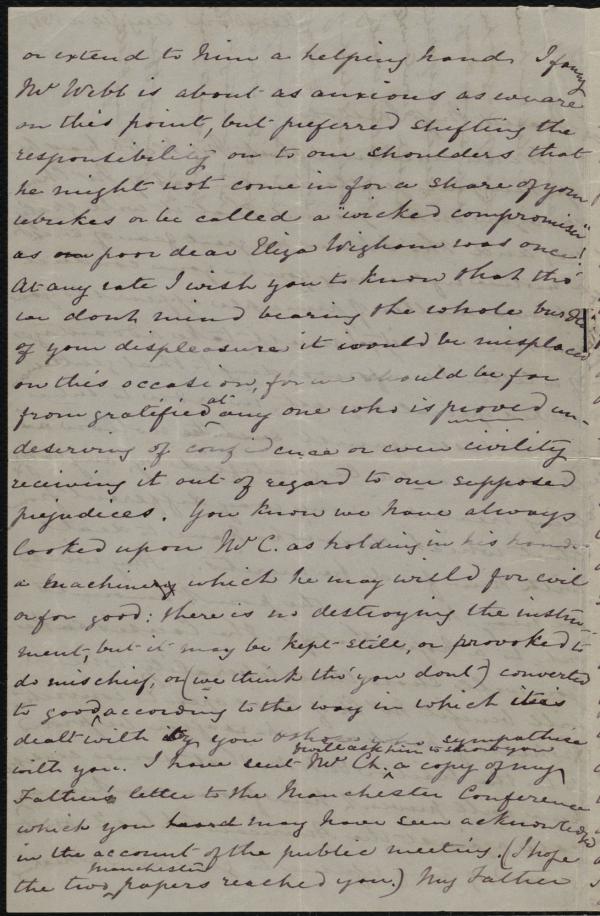 or extend to him a helping hand. I fancy
Mr Webb is about as anxious as we are
on this point, but preferred shifting the
responsibility on to our shoulders that
he might not come in for a share of your
rebukes or be called a "wicked compromiser"
as our poor dear Eliza Wigham was once!
At any rate I wish you to know that tho'
we dont mind bearing the whole burden
of your displeasure it would be misplaced
on this occasion, for we should be far
from gratified at any one who is proved un-
deserving of confidence or even civility
receiving it out of regard to our supposed
prejudices. You know we have always
looked upon Mr C. as holding in his hands
a machinery which he may wield for evil
or for good: there is no destroying the instru-
ment, but it may be kept still, or provoked to
do mischief, or (we think tho' you dont) converted
to good according to the way in which it is
dealt with by you & those who sympathise
I will ask him to show you
with you. I have sent Mr Ch. a copy of my
Father's letter to the Manchester Conference
which you may have seen acknowledged
in the account of the public meeting. (I hope
Manchester
the two papers reached you.) My Father